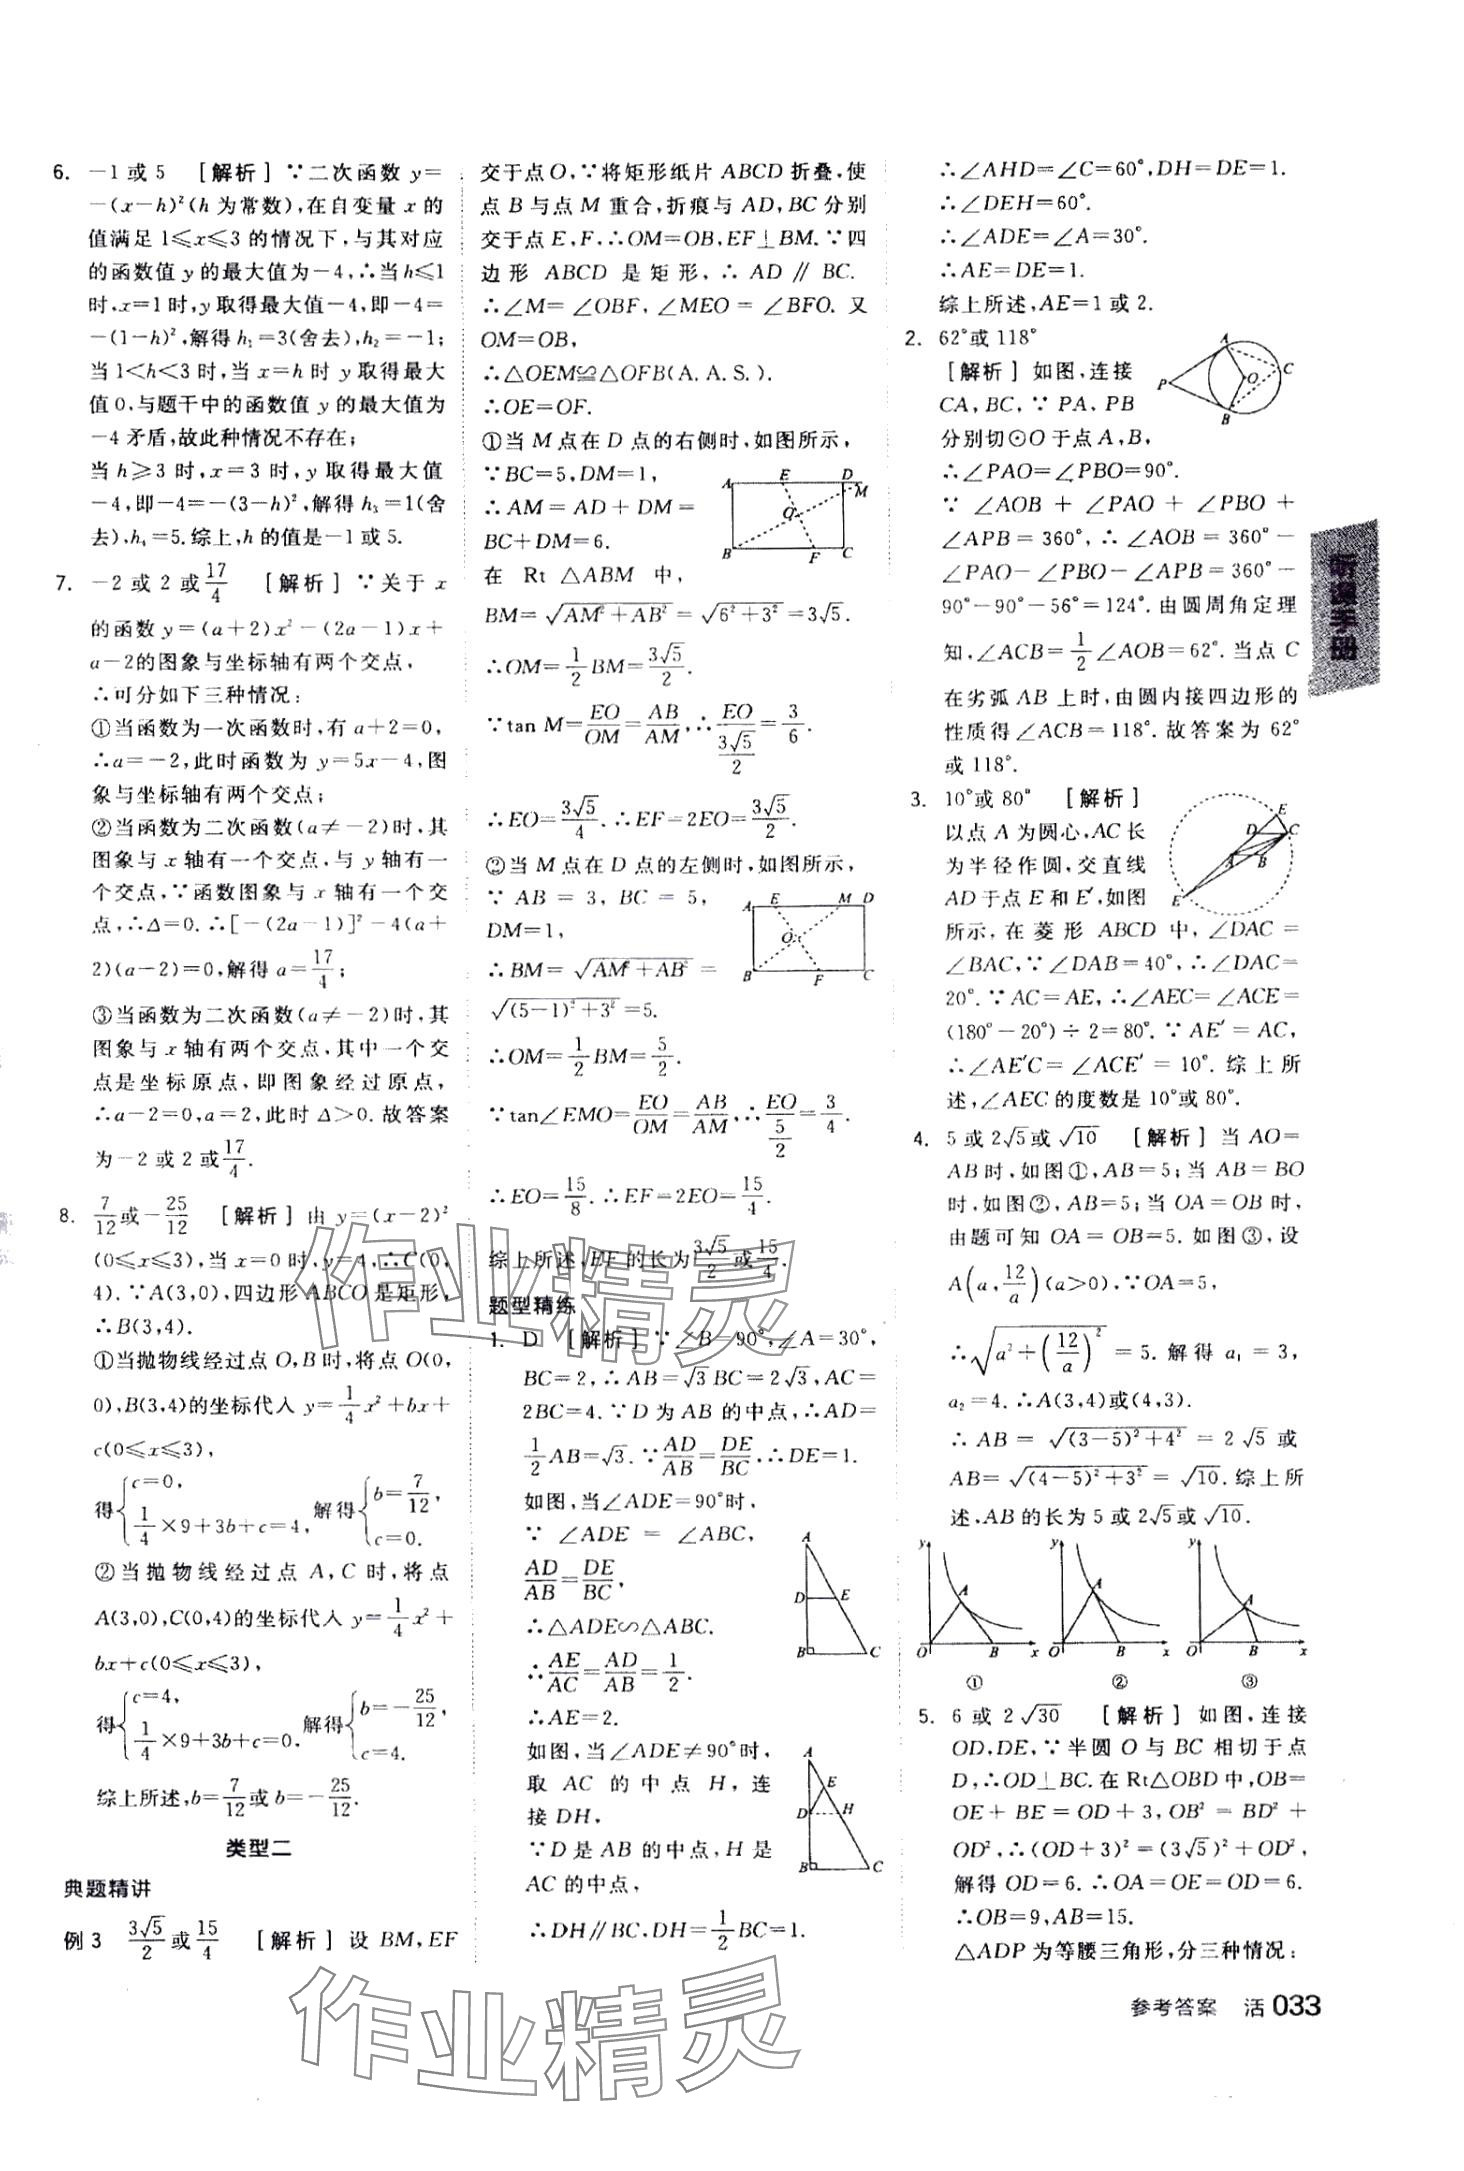 6. －1 或 5　[解析]∵二次函数 y＝
－(x－h)²(h 为常数),在自变量 x 的
值满足 1≤x≤3 的情况下,与其对应
的函数值 y 的最大值为－4,∴当 h≤1
时,x＝1 时,y 取得最大值－4,即－4＝
－(1－h)²,解得 h₁＝3(舍去),h₂＝－1;
当 1<h<3 时,当 x＝h 时 y 取得最大
值 0,与题干中的函数值 y 的最大值为
－4 矛盾,故此种情况不存在;
当 h≥3 时,x＝3 时,y 取得最大值
－4,即－4＝－(3－h)²,解得 h₃＝1(舍
去),h₄＝5.综上,h 的值是－1 或 5.
7. －2 或 2 或 17/4　[解析]∵关于 x
的函数 y＝(a＋2)x²－(2a－1)x＋
a－2的图象与坐标轴有两个交点,
∴可分如下三种情况:
①当函数为一次函数时,有 a＋2＝0,
∴a＝－2,此时函数为 y＝5x－4,图
象与坐标轴有两个交点;
②当函数为二次函数(a≠－2)时,其
图象与 x 轴有一个交点,与 y 轴有一
个交点,∵函数图象与 x 轴有一个交
点,∴Δ＝0.∴[－(2a－1)]²－4(a＋
2)(a－2)＝0,解得 a＝17/4;
③当函数为二次函数(a≠－2)时,其
图象与 x 轴有两个交点,其中一个交
点是坐标原点,即图象经过原点,
∴a－2＝0,a＝2,此时 Δ>0.故答案
为－2 或 2 或 17/4.
8. 7/12 或－25/12　[解析]由 y＝(x－2)²
(0≤x≤3),当 x＝0 时,y＝4,∴C(0,
4).∵A(3,0),四边形 ABCO 是矩形,
∴B(3,4).
①当抛物线经过点 O,B 时,将点 O(0,
0),B(3,4)的坐标代入 y＝1/4 x²＋bx＋
c(0≤x≤3),
得{c＝0, 1/4×9＋3b＋c＝4, 解得{b＝7/12, c＝0.
②当抛物线经过点 A,C 时,将点
A(3,0),C(0,4)的坐标代入 y＝1/4 x²＋
bx＋c(0≤x≤3),
得{c＝4, 1/4×9＋3b＋c＝0, 解得{b＝－25/12, c＝4.
综上所述,b＝7/12 或 b＝－25/12.
类型二
典题精讲
例 3　3√5/2 或 15/4　[解析]设 BM,EF
交于点 O,∵将矩形纸片 ABCD 折叠,使
点 B 与点 M 重合,折痕与 AD,BC 分别
交于点 E,F,∴OM＝OB,EF⊥BM.∵四
边形 ABCD 是矩形,∴AD∥BC.
∴∠M＝∠OBF,∠MEO＝∠BFO.又
OM＝OB,
∴△OEM≌△OFB(A.A.S.).
∴OE＝OF.
①当 M 点在 D 点的右侧时,如图所示,
∵BC＝5,DM＝1,
∴AM＝AD＋DM＝
BC＋DM＝6.
在 Rt△ABM 中,
BM＝√(AM²＋AB²)＝√(6²＋3²)＝3√5.
∴OM＝1/2 BM＝3√5/2.
∵tan M＝EO/OM＝AB/AM,∴EO/(3√5/2)＝3/6.
∴EO＝3√5/4.∴EF＝2EO＝3√5/2.
②当 M 点在 D 点的左侧时,如图所示,
∵AB＝3,BC＝5,
DM＝1,
∴BM＝√(AM²＋AB²)＝
√((5－1)²＋3²)＝5.
∴OM＝1/2 BM＝5/2.
∵tan∠EMO＝EO/OM＝AB/AM,∴EO/(5/2)＝3/4.
∴EO＝15/8.∴EF＝2EO＝15/4.
综上所述,EF 的长为 3√5/2 或 15/4.
题型精练
1. D　[解析]∵∠B＝90°,∠A＝30°,
BC＝2,∴AB＝√3 BC＝2√3,AC＝
2BC＝4.∵D 为 AB 的中点,∴AD＝
1/2 AB＝√3.∵AD/AB＝DE/BC,∴DE＝1.
如图,当∠ADE＝90°时,
∵∠ADE＝∠ABC,
AD/AB＝DE/BC,
∴△ADE∽△ABC.
∴AE/AC＝AD/AB＝1/2.
∴AE＝2.
如图,当∠ADE≠90°时,
取 AC 的中点 H,连
接 DH,
∵D 是 AB 的中点,H 是
AC 的中点,
∴DH∥BC,DH＝1/2 BC＝1.
∴∠AHD＝∠C＝60°,DH＝DE＝1.
∴∠DEH＝60°.
∴∠ADE＝∠A＝30°.
∴AE＝DE＝1.
综上所述,AE＝1 或 2.
2. 62°或 118°
[解析]如图,连接
CA,BC,∵PA,PB
分别切⊙O 于点 A,B,
∴∠PAO＝∠PBO＝90°.
∵∠AOB＋∠PAO＋∠PBO＋
∠APB＝360°,∴∠AOB＝360°－
∠PAO－∠PBO－∠APB＝360°－
90°－90°－56°＝124°.由圆周角定理
知,∠ACB＝1/2∠AOB＝62°.当点 C
在劣弧 AB 上时,由圆内接四边形的
性质得∠ACB＝118°.故答案为 62°
或 118°.
3. 10°或 80°　[解析]
以点 A 为圆心,AC 长
为半径作圆,交直线
AD 于点 E 和 E′,如图
所示,在菱形 ABCD 中,∠DAC＝
∠BAC,∵∠DAB＝40°,∴∠DAC＝
20°.∵AC＝AE,∴∠AEC＝∠ACE＝
(180°－20°)÷2＝80°.∵AE′＝AC,
∴∠AE′C＝∠ACE′＝10°.综上所
述,∠AEC 的度数是 10°或 80°.
4. 5 或 2√5或√10　[解析]当 AO＝
AB 时,如图①,AB＝5;当 AB＝BO
时,如图②,AB＝5;当 OA＝OB 时,
由题可知 OA＝OB＝5.如图③,设
A(a,12/a)(a>0),∵OA＝5,
∴√(a²＋(12/a)²)＝5.解得 a₁＝3,
a₂＝4.∴A(3,4)或(4,3).
∴AB＝√((3－5)²＋4²)＝2√5 或
AB＝√((4－5)²＋3²)＝√10.综上所
述,AB 的长为 5 或 2√5或√10.
①　②　③
5. 6 或 2√30　[解析]如图,连接
OD,DE,∵半圆 O 与 BC 相切于点
D,∴OD⊥BC.在 Rt△OBD 中,OB＝
OE＋BE＝OD＋3,OB²＝BD²＋
OD²,∴(OD＋3)²＝(3√5)²＋OD²,
解得 OD＝6.∴OA＝OE＝OD＝6.
∴OB＝9,AB＝15.
△ADP 为等腰三角形,分三种情况:
听课手册
参考答案　活 033
作业精灵
作业精灵